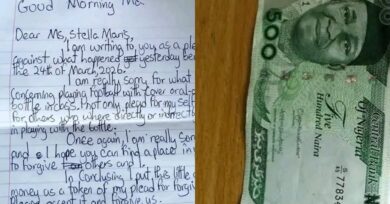 Good Morning Ma
Dear Ms, Stella Maris,
I am writing to you as a ple
against what happened yesterday be
the 24th of March, 2026.
I am really sorry for what
concerning playing football with
bottle in class. that only, plead for my self
for others who where directly or indirect
in playing with the bottle.
Once again, I am really sorr
and I hope you can find a place in
to forgive others and I.
In Concluding I put this little
money as a token of my plead for forgi
please accept it and forgive us.
500
Five
Hundred Naira
Central Bank
Of Nigeria
7783